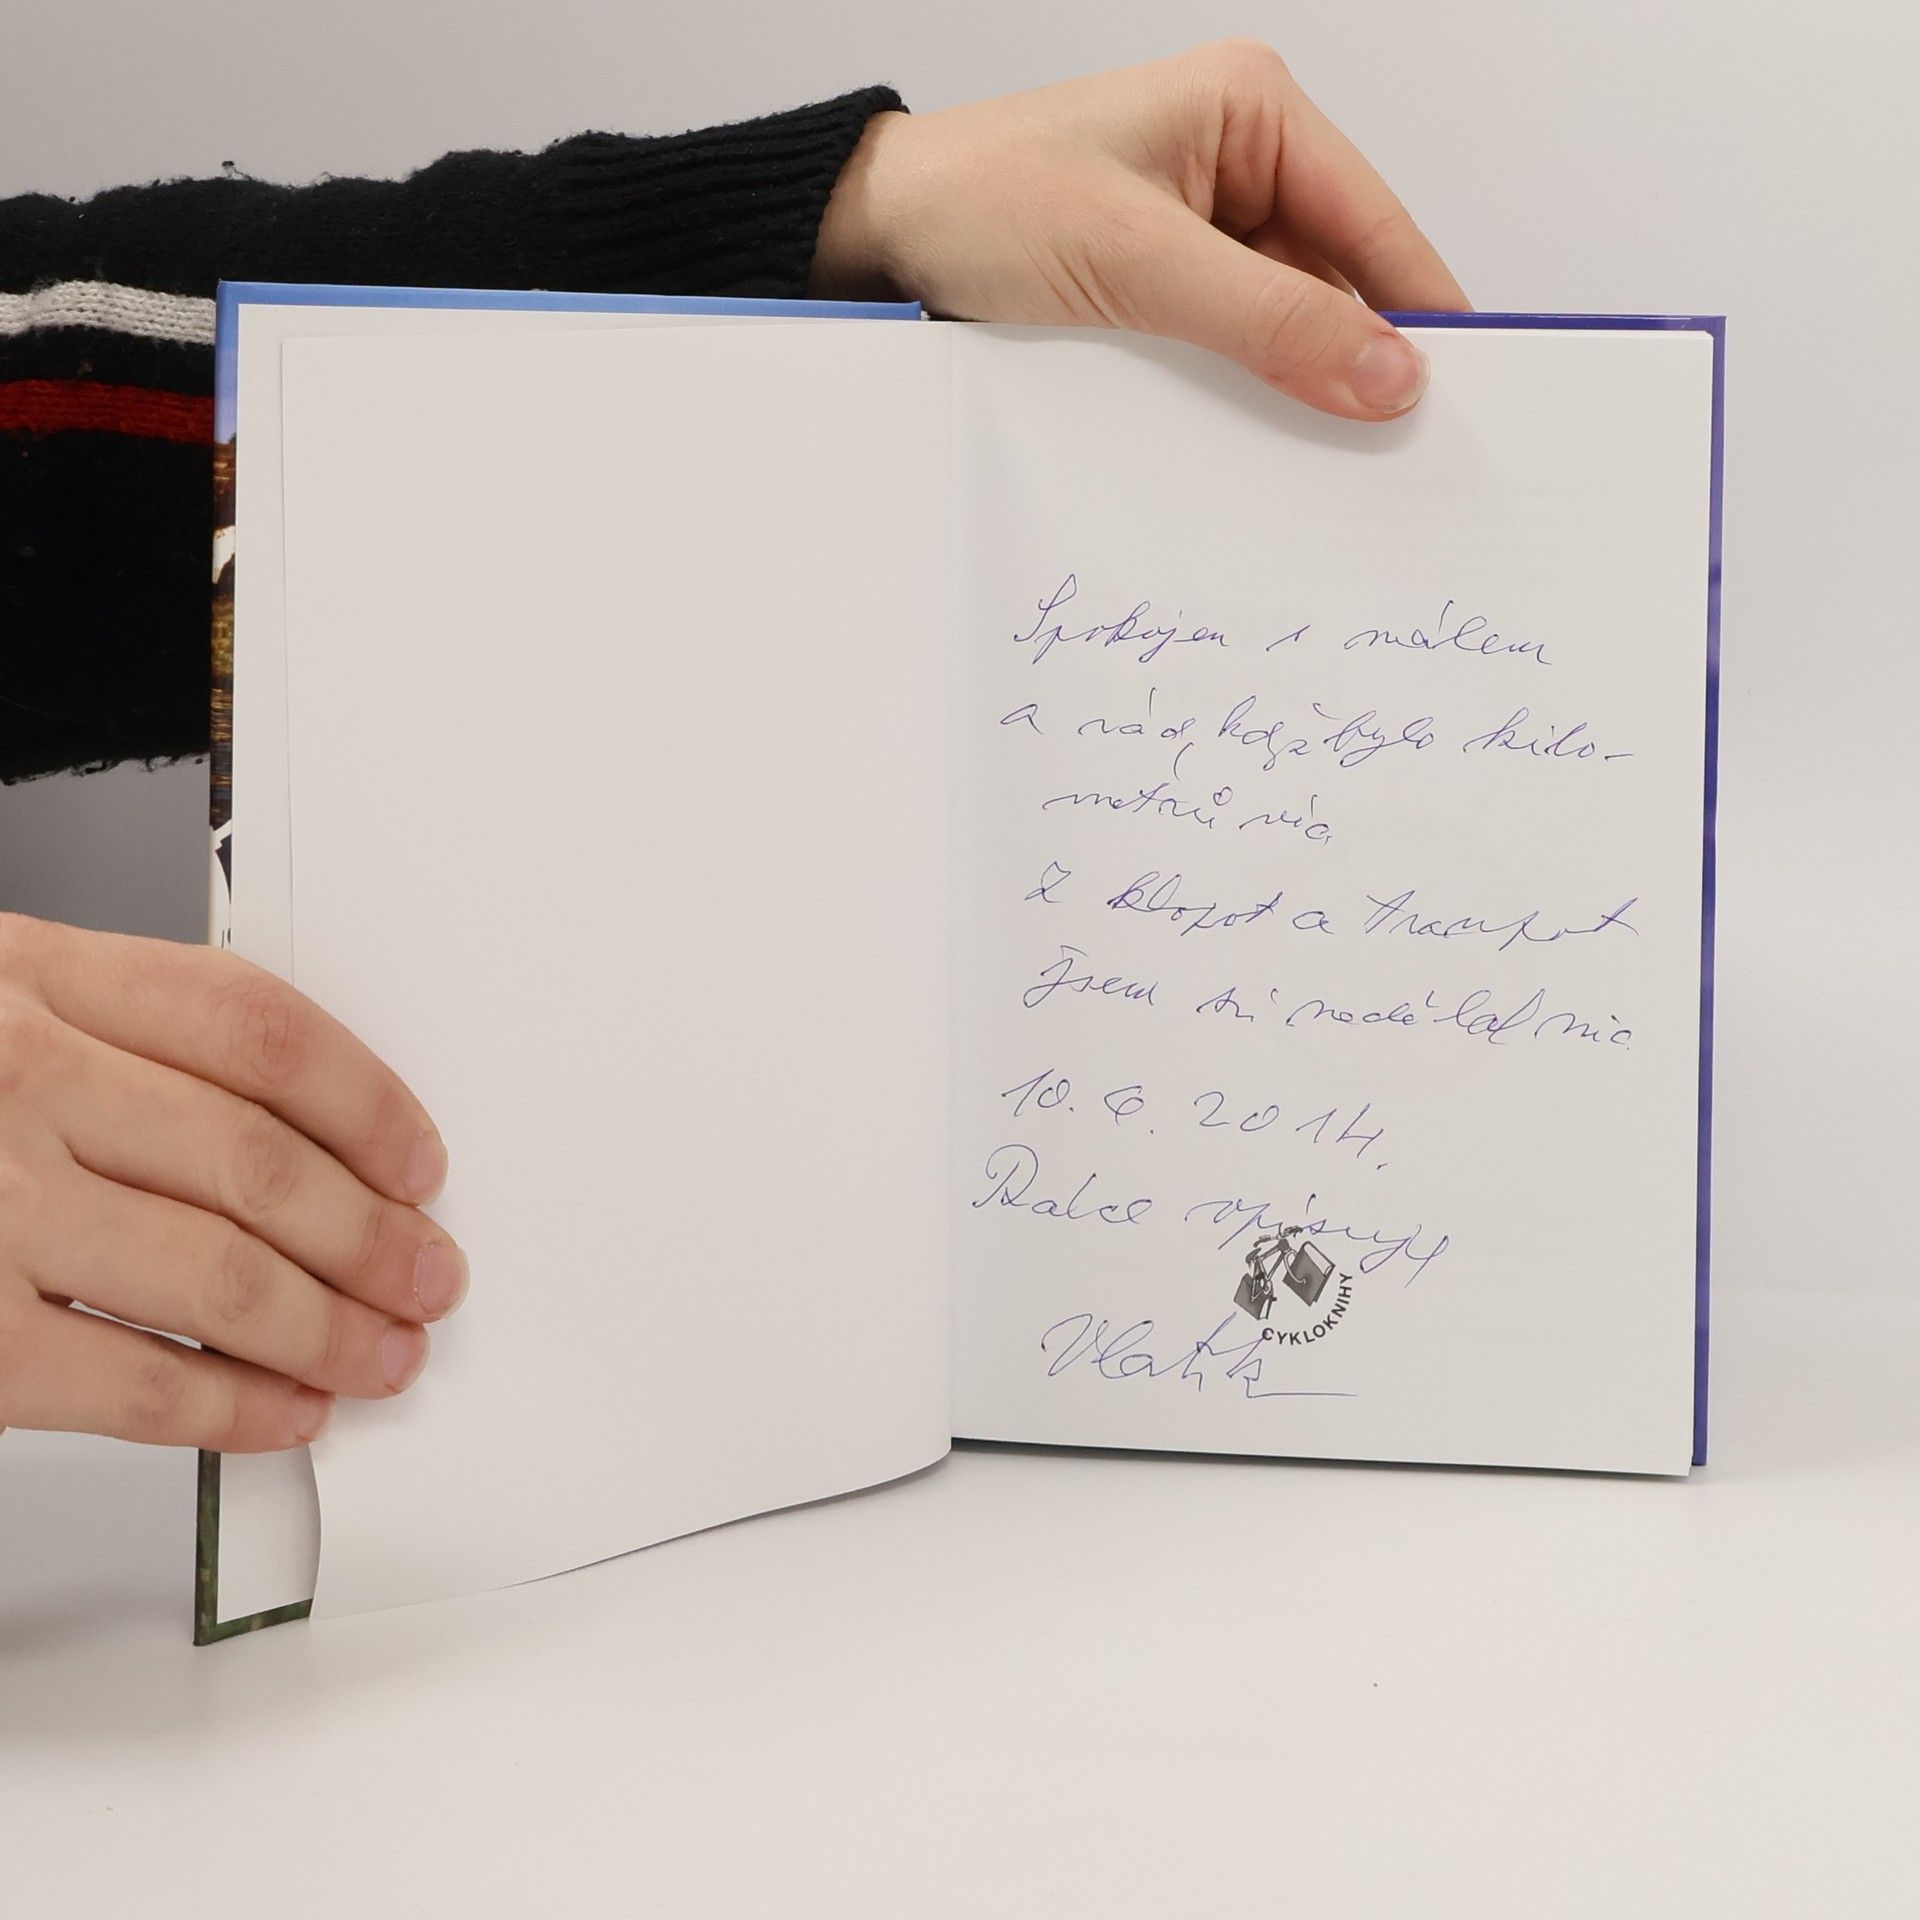 Spokojen s málem
a rád, když bylo kilo-
metrů víc
Z klopot a trampot
jsem si nedělal nic
10. 6. 2014.
Ralce vpisuje
CYKLOKNIHY